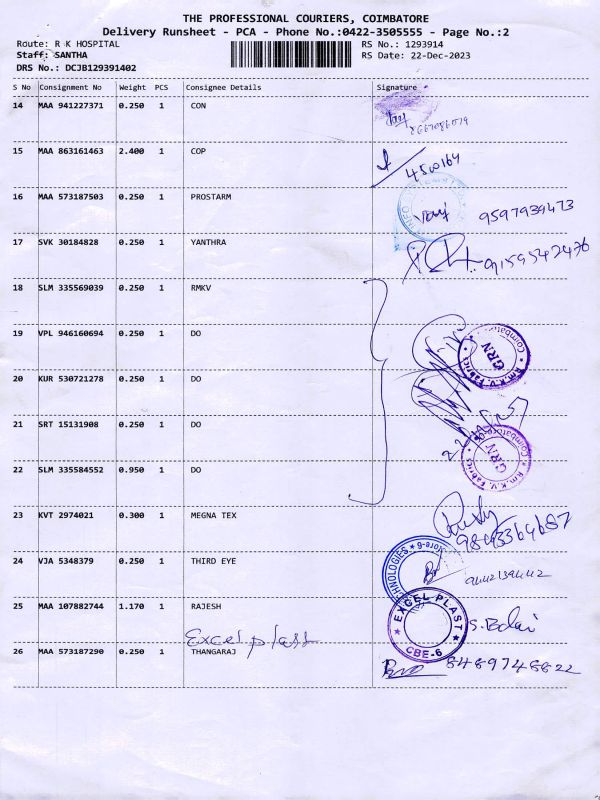 THE PROFESSIONAL COURIERS, COIMBATORE
Delivery Runsheet - PCA - Phone No.:0422-3505555 - Page No.:2
Route: R K HOSPITAL RS No.: 1293914
Staff: SANTHA RS Date: 22-Dec-2023
DRS No.: DCJB129391402
S No Consignment No Weight PCS Consignee Details Signature
14 MAA 941227371 0.250 1 CON
15 MAA 863161463 2.400 1 COP
4500164
16 MAA 573187503 0.250 1 PROSTARM
9597939473
17 SVK 30184828 0.250 1 YANTHRA
9159542476
18 SLM 335569039 0.250 1 RMKV
19 VPL 946160694 0.250 1 DO
Coimbatore
GRN
Rm.K.V. Fabrics
20 KUR 530721278 0.250 1 DO
21 SRT 15131908 0.250 1 DO
Coimbatore
GRN
Rm.K.V. Fabrics
22 SLM 335584552 0.950 1 DO
23 KVT 2974021 0.300 1 MEGNA TEX
9843364687
24 VJA 5348379 0.250 1 THIRD EYE
25 MAA 107882744 1.170 1 RAJESH
EXCEL PLAST
CBE-6
Excel plast
26 MAA 573187290 0.250 1 THANGARAJ
8489748822